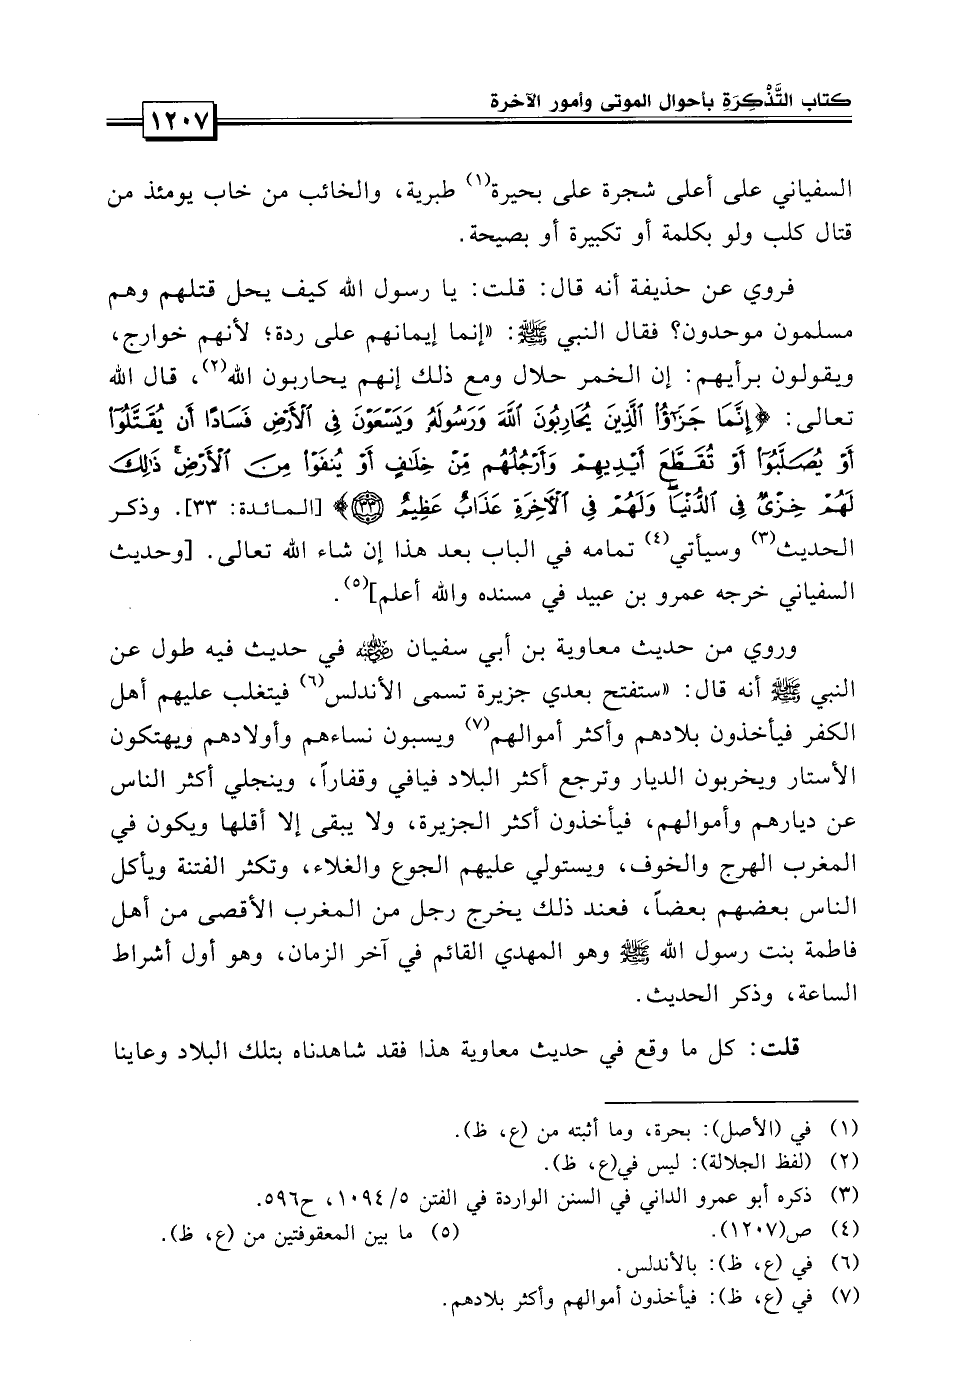 كتاب التَّذْكِرَةِ بأحوال الموتى وأمور الآخرة
١٢٠٧
السفياني على أعلى شجرة على بحيرة(١) طبرية، والخائب من خاب يومئذ من
قتال كلب ولو بكلمة أو تكبيرة أو بصيحة.
فروي عن حذيفة أنه قال: قلت: يا رسول الله كيف يحل قتلهم وهم
مسلمون موحدون؟ فقال النبي ﷺ: «إنما إيمانهم على ردة؛ لأنهم خوارج،
ويقولون برأيهم: إن الخمر حلال ومع ذلك إنهم يحاربون الله(٢)، قال الله
تعالى: ﴿إِنَّمَا جَزَٰٓؤُا۟ ٱلَّذِينَ يُحَارِبُونَ ٱللَّهَ وَرَسُولَهُۥ وَيَسْعَوْنَ فِى ٱلْأَرْضِ فَسَادًا أَن يُقَتَّلُوٓا۟
أَوْ يُصَلَّبُوٓا۟ أَوْ تُقَطَّعَ أَيْدِيهِمْ وَأَرْجُلُهُم مِّنْ خِلَٰفٍ أَوْ يُنفَوْا۟ مِنَ ٱلْأَرْضِ ۚ ذَٰلِكَ
لَهُمْ خِزْىٌ فِى ٱلدُّنْيَا ۖ وَلَهُمْ فِى ٱلْءَاخِرَةِ عَذَابٌ عَظِيمٌ ٣٣﴾ [المائدة: ٣٣]. وذكر
الحديث(٣) وسيأتي(٤) تمامه في الباب بعد هذا إن شاء الله تعالى. [وحديث
السفياني خرجه عمرو بن عبيد في مسنده والله أعلم](٥).
وروي من حديث معاوية بن أبي سفيان رضي الله عنه في حديث فيه طول عن
النبي ﷺ أنه قال: «ستفتح بعدي جزيرة تسمى الأندلس(٦) فيتغلب عليهم أهل
الكفر فيأخذون بلادهم وأكثر أموالهم(٧) ويسبون نساءهم وأولادهم ويهتكون
الأستار ويخربون الديار وترجع أكثر البلاد فيافي وقفاراً، وينجلي أكثر الناس
عن ديارهم وأموالهم، فيأخذون أكثر الجزيرة، ولا يبقى إلا أقلها ويكون في
المغرب الهرج والخوف، ويستولي عليهم الجوع والغلاء، وتكثر الفتنة ويأكل
الناس بعضهم بعضاً، فعند ذلك يخرج رجل من المغرب الأقصى من أهل
فاطمة بنت رسول الله ﷺ وهو المهدي القائم في آخر الزمان، وهو أول أشراط
الساعة، وذكر الحديث.
قلت: كل ما وقع في حديث معاوية هذا فقد شاهدناه بتلك البلاد وعاينا
(١) في (الأصل): بحرة، وما أثبته من (ع، ظ).
(٢) (لفظ الجلالة): ليس في(ع، ظ).
(٣) ذكره أبو عمرو الداني في السنن الواردة في الفتن ٥/ ١٠٩٤، ح٥٩٦.
(٤) ص(١٢٠٧). (٥) ما بين المعقوفتين من (ع، ظ).
(٦) في (ع، ظ): بالأندلس.
(٧) في (ع، ظ): فيأخذون أموالهم وأكثر بلادهم.